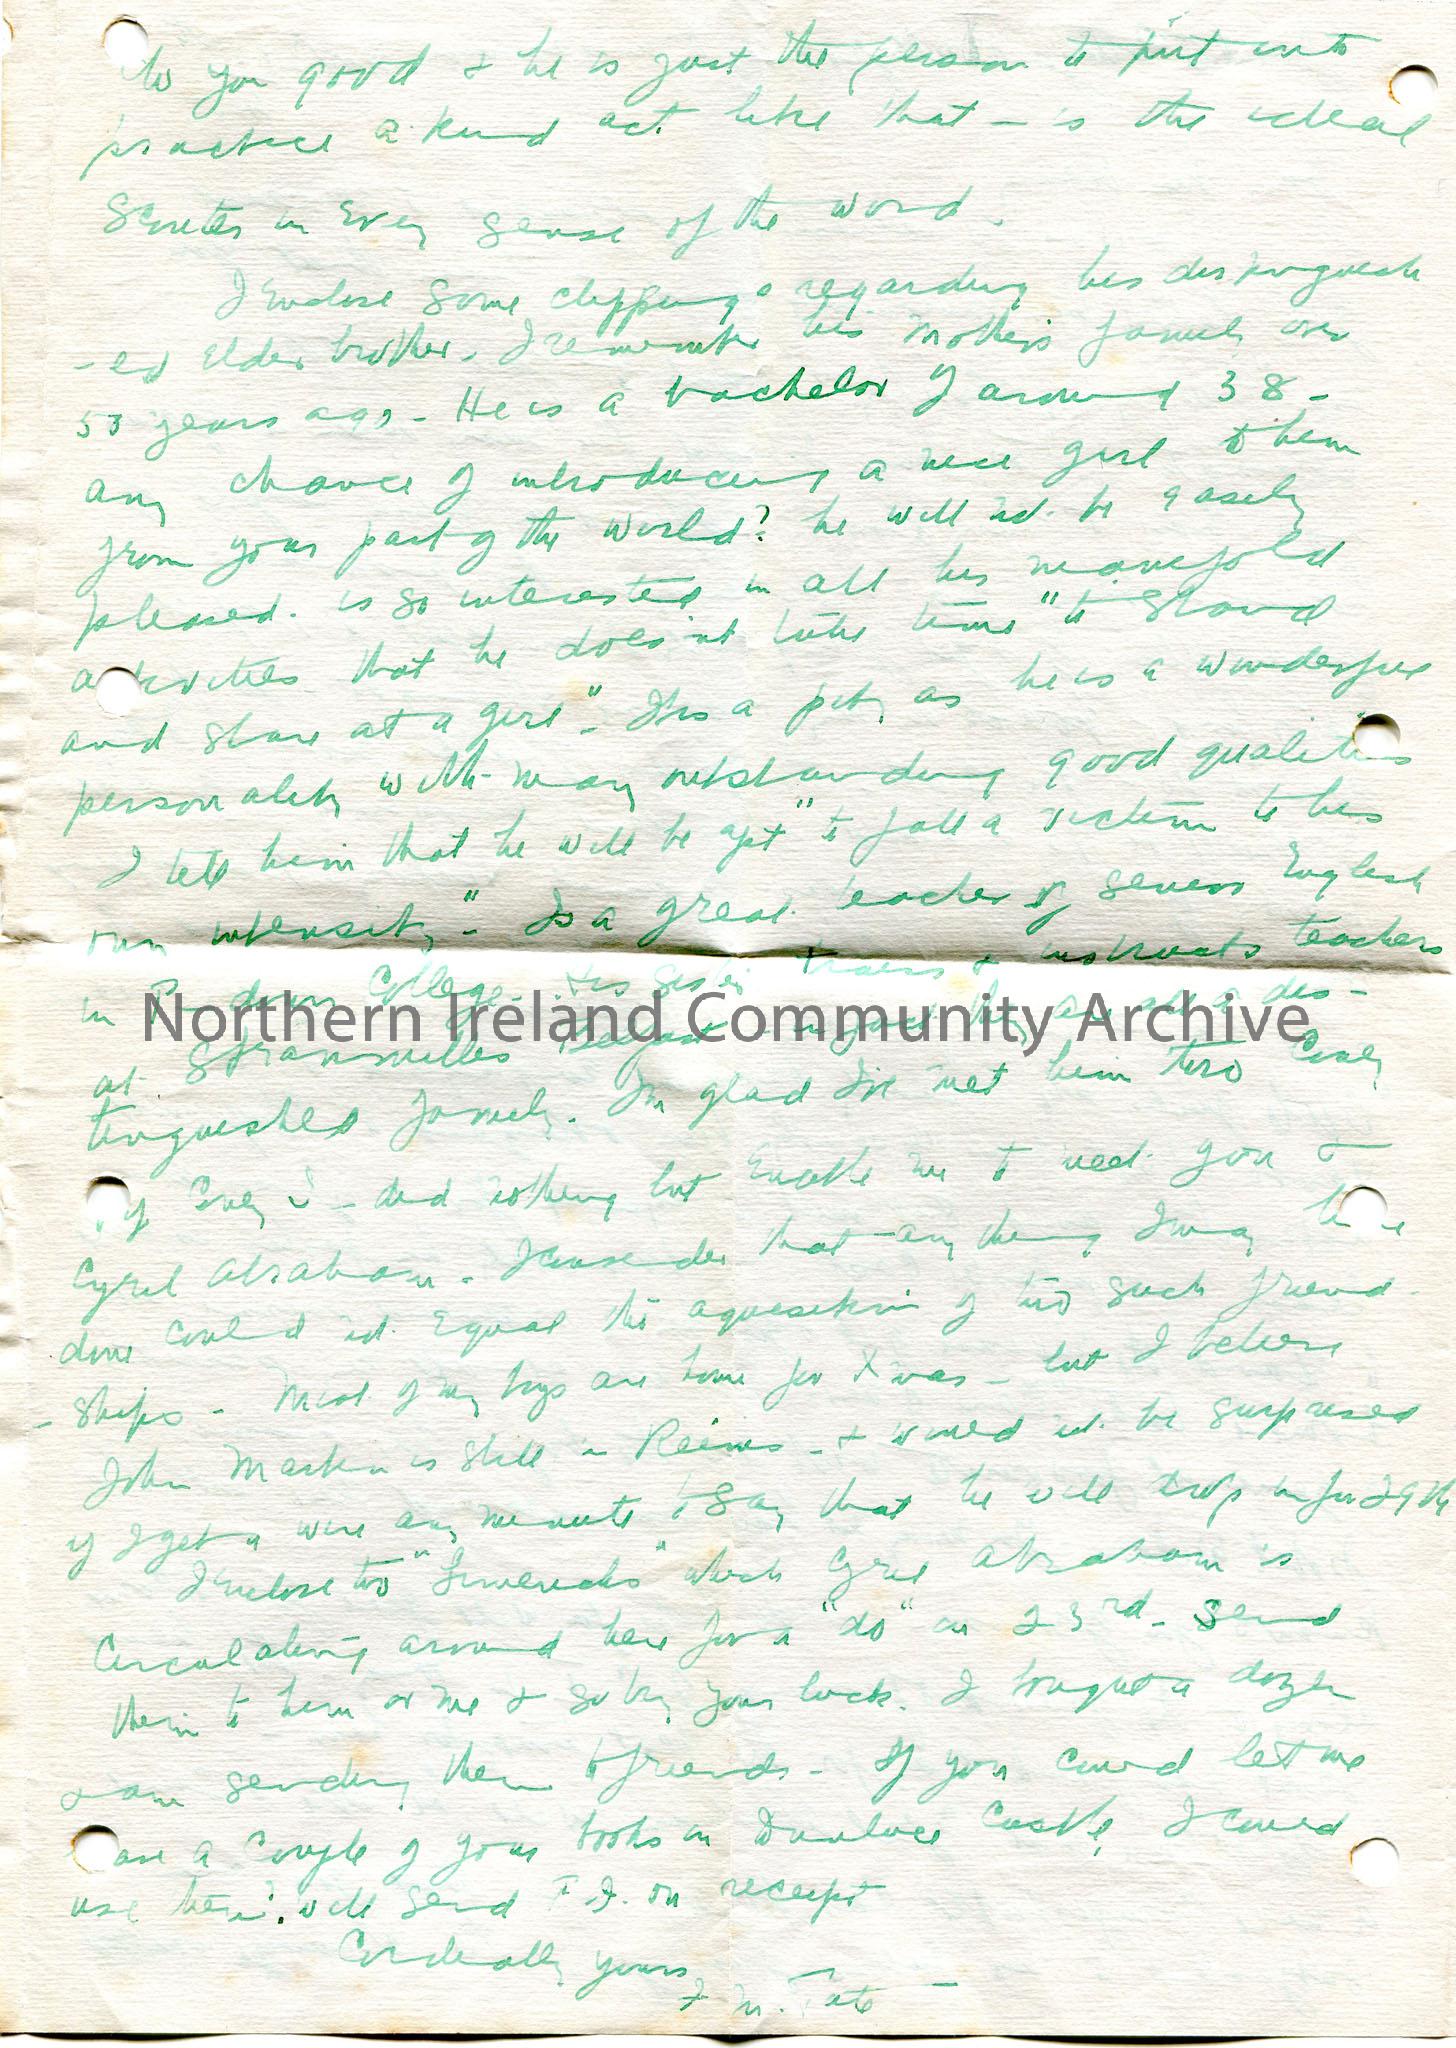 to you good & he is just the person to put into
practice a kind act like that – is the ideal
Scouter in Every sense of the word.
I Enclose some clippings regarding his distinguish
-ed Elder brother. I remember his mother's family over
53 years ago – He is a bachelor of around 38 –
any chance of introducing a nice girl to him
from your part of the world? he will not be easily
pleased. is so interested in all his manifold
activities that he does not take time "to stand
and stare at a girl". It is a pity as he is a wonderful
personality with many outstanding good qualities
I tell him that he will be apt "to fall a victim to his
own intensity." Is a great teacher of Senior English
in College. His sister trains & instructs teachers
at Stranmillis Belfast – in fact they are all a dis-
Northern Ireland Community Archive
tinguished family. I'm glad I've met him two
if did nothing but Enable me to meet you &
Cyril Abraham. I consider that anything I may have
done could not Equal the aquesition of two such friend-
-ships. Most of my boys are home for Xmas – but I believe
John Martin is still in – & would not be surprised
if I get a wire any minute to say that he will drop in for 29th
I Enclose two "Limericks" which Cyril Abraham is
Circulating around here for a "do" on 23rd. Send
them to him or me & so try your luck. I bought a dozen
& am sending them to friends – If you could let me
have a Couple of your books on Dunluce Castle, I could
use them. will send on receipt
Cordially yours
M. Tate